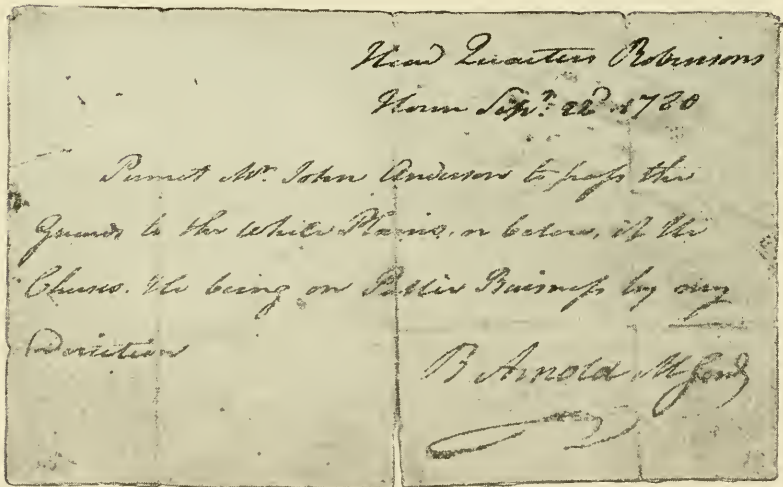 Head Quarters Robinsons
House Sepr. 22d. 1780
Permit Mr. John Anderson to pass the
Guards to the White Plains, or below, if He
Chuses. He being on Public Business by my
Direction
B Arnold M Genl